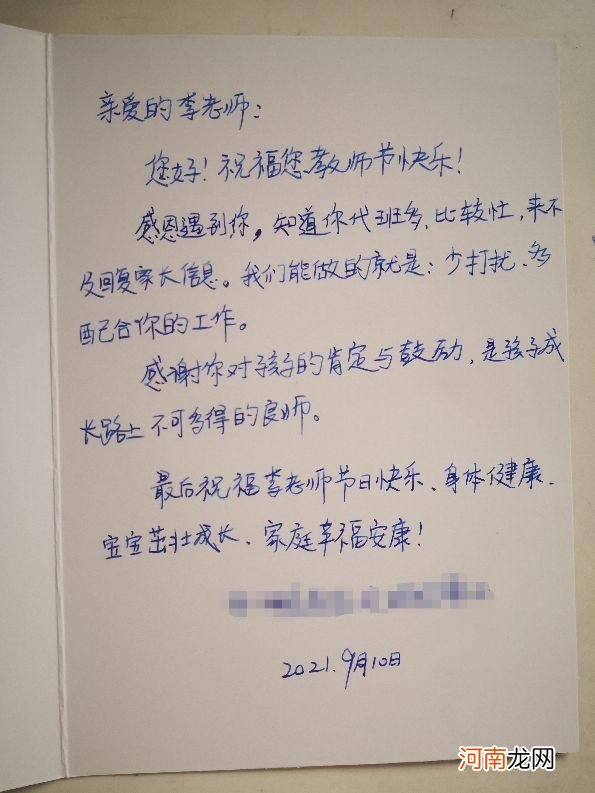 亲爱的李老师：
您好！祝福您教师节快乐！
感恩遇到你，知道你代班多、比较忙，来不
及回复家长信息。我们能做的就是：少打扰、多
配合你的工作。
感谢你对孩子的肯定与鼓励，是孩子成
长路上不可多得的良师。
最后祝福李老师节日快乐、身体健康、
宝宝茁壮成长、家庭幸福安康！
2021.9月10日
河南龙网